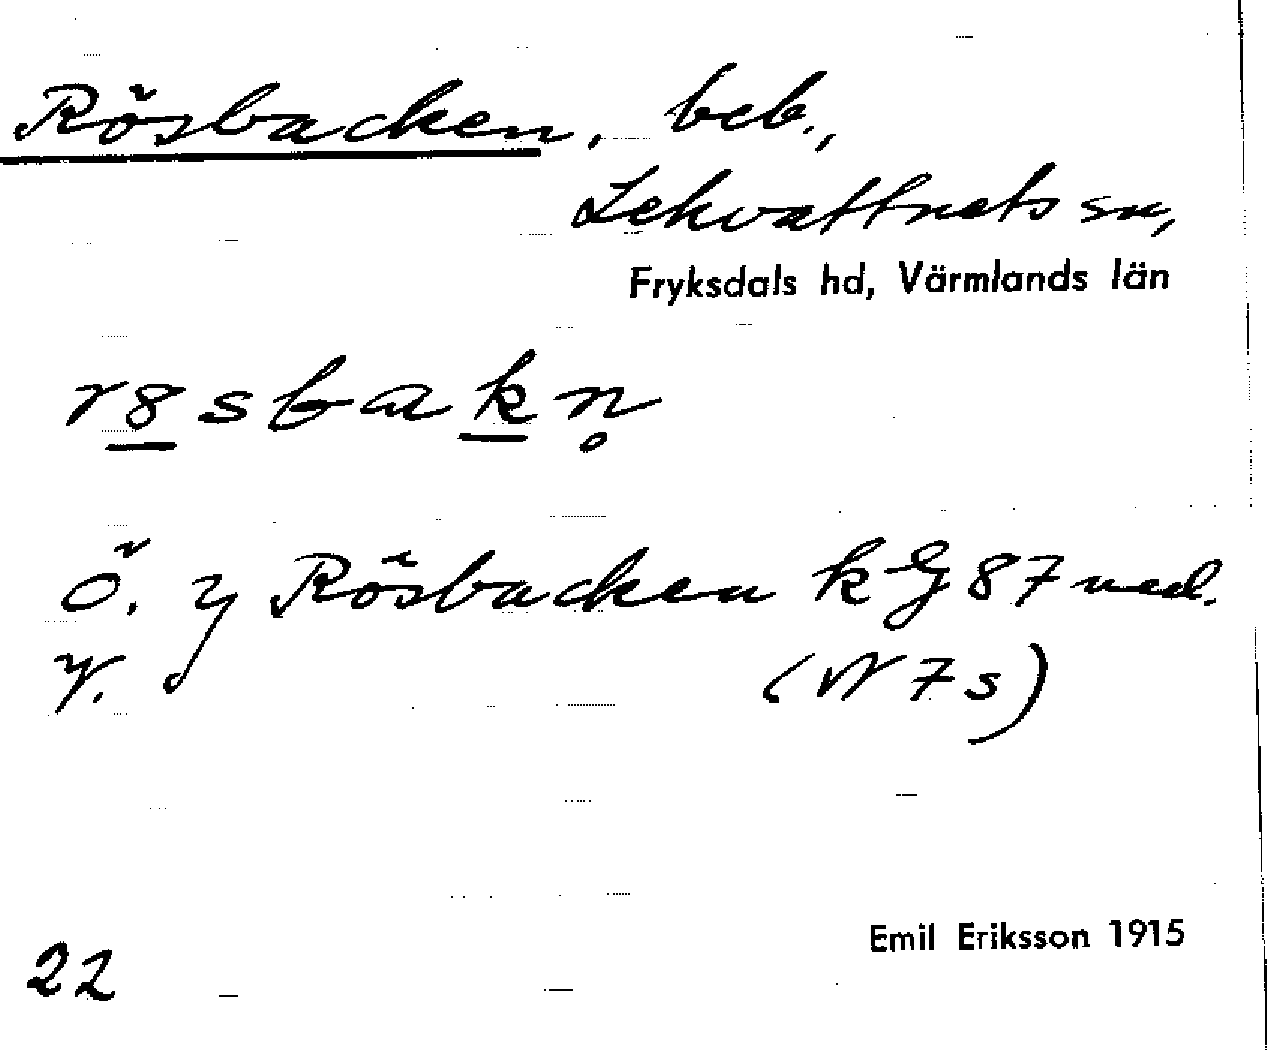 Rösbacken, beb.,
Lekvattnets sn,
Fryksdals hd, Värmlands län
r8sbakn̥
Ö. y Rösbacken k G 87 ned.
V. (W 7 s)
Emil Eriksson 1915
22